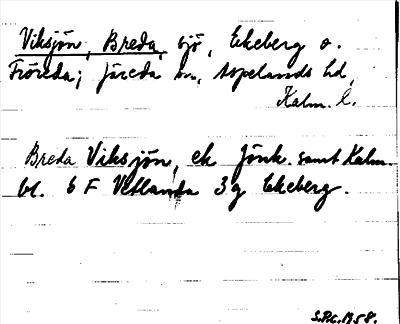 Viksjön, Breda, sjö, Ekeberg o.
Fröreda; Järeda sn, Aspelands hd,
Kalm. l.
Breda Viksjön, ek Jönk. samt Kalm.
bl. 6 F Vetlanda 3 g Ekeberg.
S.P.C. 1958.